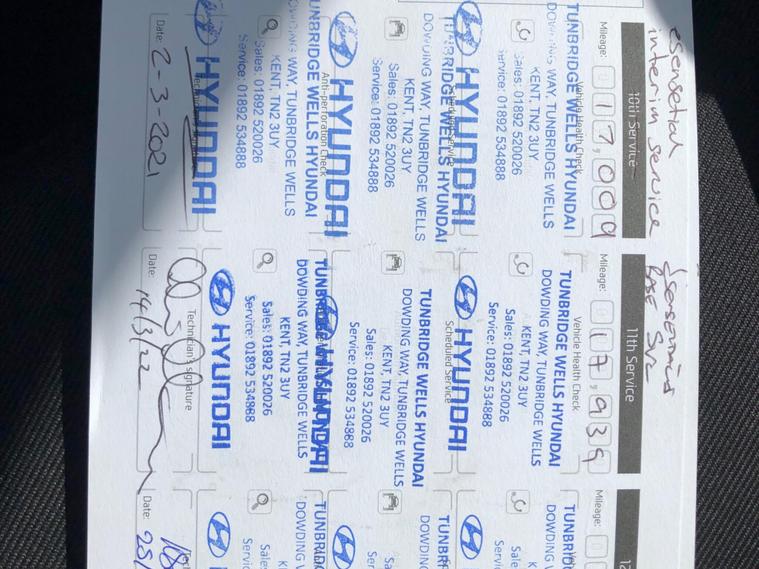 esensetial
interim service
10th Service
Mileage: 17,009
Vehicle Health Check
TUNBRIDGE WELLS HYUNDAI
DOWDING WAY, TUNBRIDGE WELLS
KENT, TN2 3UY
Sales: 01892 520026
Service: 01892 534888
HYUNDAI
Scheduled Service
TUNBRIDGE WELLS HYUNDAI
DOWDING WAY, TUNBRIDGE WELLS
KENT, TN2 3UY
Sales: 01892 520026
Service: 01892 534888
HYUNDAI
Anti-perforation Check
TUNBRIDGE WELLS HYUNDAI
DOWDING WAY, TUNBRIDGE WELLS
KENT, TN2 3UY
Sales: 01892 520026
Service: 01892 534888
HYUNDAI
Date: 2-3-2021
11th Service
Mileage: 17,939
Vehicle Health Check
TUNBRIDGE WELLS HYUNDAI
DOWDING WAY, TUNBRIDGE WELLS
KENT, TN2 3UY
Sales: 01892 520026
Service: 01892 534888
HYUNDAI
Scheduled Service
TUNBRIDGE WELLS HYUNDAI
DOWDING WAY, TUNBRIDGE WELLS
KENT, TN2 3UY
Sales: 01892 520026
Service: 01892 534888
HYUNDAI
TUNBRIDGE WELLS HYUNDAI
DOWDING WAY, TUNBRIDGE WELLS
KENT, TN2 3UY
Sales: 01892 520026
Service: 01892 534888
HYUNDAI
Technician's signature
Date: 14/3/22
12
Mileage:
TUNBRID
DOWDING
Sales
Service
TUNBR
DOWDING
Sal
Servi
TUNBR
DOWDIN
Sale
Servic
Date: